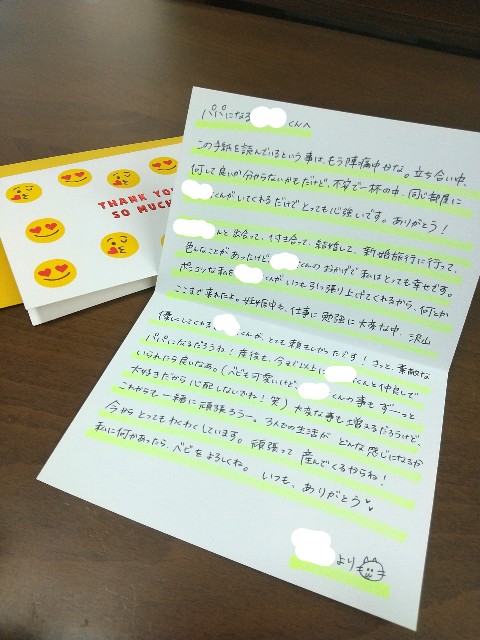 THANK YOU
SO MUCH
パパになる くんへ
この手紙を読んでいるという事は、もう陣痛中かな。立ち合い中、
何して良いか分からないかもだけど、不安で一杯の中、同じ部屋に
くんがいてくれるだけどとっても心強いです。ありがとう!
んと出会って、付き合って、結婚して、新婚旅行に行って、
色んなことがあったけど くんのおかげで私はとても幸せです。
ポンコツな私を くんがいつも引っ張り上げてくれるから、何とか
ここまで来れたよ。妊娠中も、仕事に勉強に大変な中、沢山
優しくしてくれる くんが、とても頼もしかったです!きっと、素敵な
パパになるだろうね!産後も、今まで以上に くんと仲良しで
いられたら良いなぁ。(ベビも可愛いけど、 くんの事もずーっと
大好きだから心配しないでね!笑)大変な事も増えるだろうけど、
これからも一緒に頑張ろうー。3人での生活がどんな感じになるか
今からとってもわくわくしています。頑張って産んでくるからね!
私に何かあったら、ベビをよろしくね。いつも、ありがとう
より